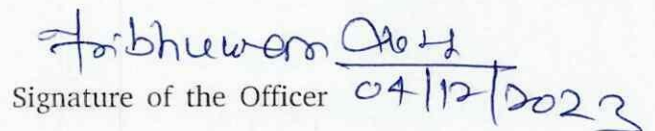 Tribhuwan
Signature of the Officer 04/12/2023